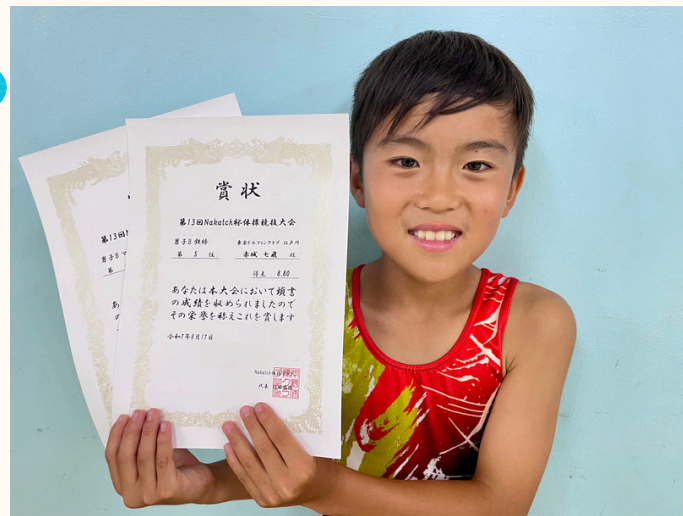 賞状
第13回Nakatch杯体操競技大会
男子B 鉄棒
東京ドルフィンクラブ 江戸川
第 5 位
赤城 七歳 殿
得点 8.80
あなたは本大会において頭書
の成績を収められましたので
その栄誉を称えこれを賞します
令和7年8月17日
Nakatch体操
代表
第13回N
男子B
第
あ
の
そ